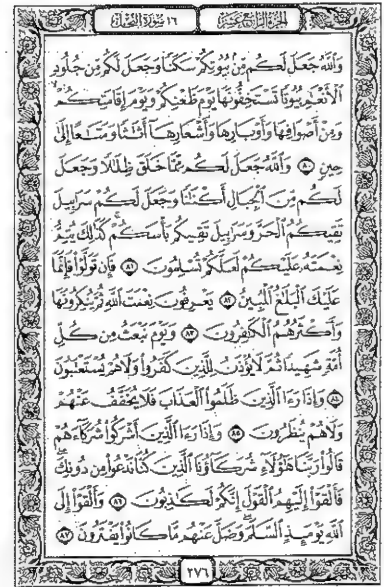 الجزء الرابع عشر ١٦ سورة النحل
وَاللَّهُ جَعَلَ لَكُم مِّنۢ بُيُوتِكُمْ سَكَنًا وَجَعَلَ لَكُم مِّن جُلُودِ
الْأَنْعَٰمِ بُيُوتًا تَسْتَخِفُّونَهَا يَوْمَ ظَعْنِكُمْ وَيَوْمَ إِقَامَتِكُمْ
وَمِنْ أَصْوَافِهَا وَأَوْبَارِهَا وَأَشْعَارِهَآ أَثَٰثًا وَمَتَٰعًا إِلَىٰ
حِينٍ ٨٠ وَاللَّهُ جَعَلَ لَكُم مِّمَّا خَلَقَ ظِلَٰلًا وَجَعَلَ
لَكُم مِّنَ الْجِبَالِ أَكْنَٰنًا وَجَعَلَ لَكُمْ سَرَٰبِيلَ
تَقِيكُمُ الْحَرَّ وَسَرَٰبِيلَ تَقِيكُم بَأْسَكُمْ كَذَٰلِكَ يُتِمُّ
نِعْمَتَهُۥ عَلَيْكُمْ لَعَلَّكُمْ تُسْلِمُونَ ٨١ فَإِن تَوَلَّوْا۟ فَإِنَّمَا
عَلَيْكَ الْبَلَٰغُ الْمُبِينُ ٨٢ يَعْرِفُونَ نِعْمَتَ اللَّهِ ثُمَّ يُنكِرُونَهَا
وَأَكْثَرُهُمُ الْكَٰفِرُونَ ٨٣ وَيَوْمَ نَبْعَثُ مِن كُلِّ
أُمَّةٍ شَهِيدًا ثُمَّ لَا يُؤْذَنُ لِلَّذِينَ كَفَرُوا۟ وَلَا هُمْ يُسْتَعْتَبُونَ
٨٤ وَإِذَا رَءَا الَّذِينَ ظَلَمُوا۟ الْعَذَابَ فَلَا يُخَفَّفُ عَنْهُمْ
وَلَا هُمْ يُنظَرُونَ ٨٥ وَإِذَا رَءَا الَّذِينَ أَشْرَكُوا۟ شُرَكَآءَهُمْ
قَالُوا۟ رَبَّنَا هَٰٓؤُلَآءِ شُرَكَآؤُنَا الَّذِينَ كُنَّا نَدْعُوا۟ مِن دُونِكَ
فَأَلْقَوْا۟ إِلَيْهِمُ الْقَوْلَ إِنَّكُمْ لَكَٰذِبُونَ ٨٦ وَأَلْقَوْا۟ إِلَى
اللَّهِ يَوْمَئِذٍ السَّلَمَ وَضَلَّ عَنْهُم مَّا كَانُوا۟ يَفْتَرُونَ ٨٧
٢٧٦